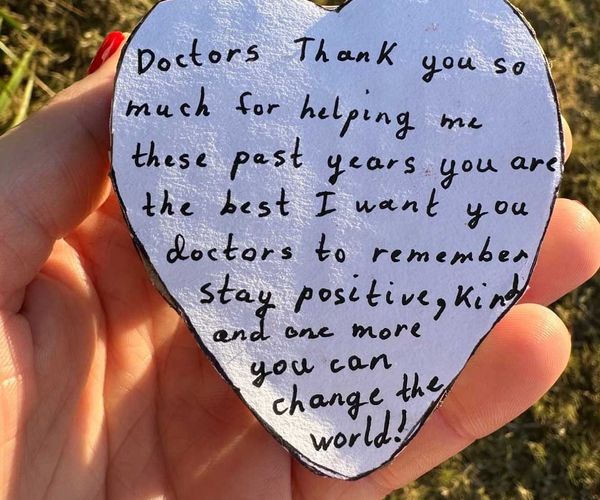 Doctors Thank you so
much for helping me
these past years you are
the best I want you
doctors to remember
stay positive, kind
and one more
you can
change the
world!